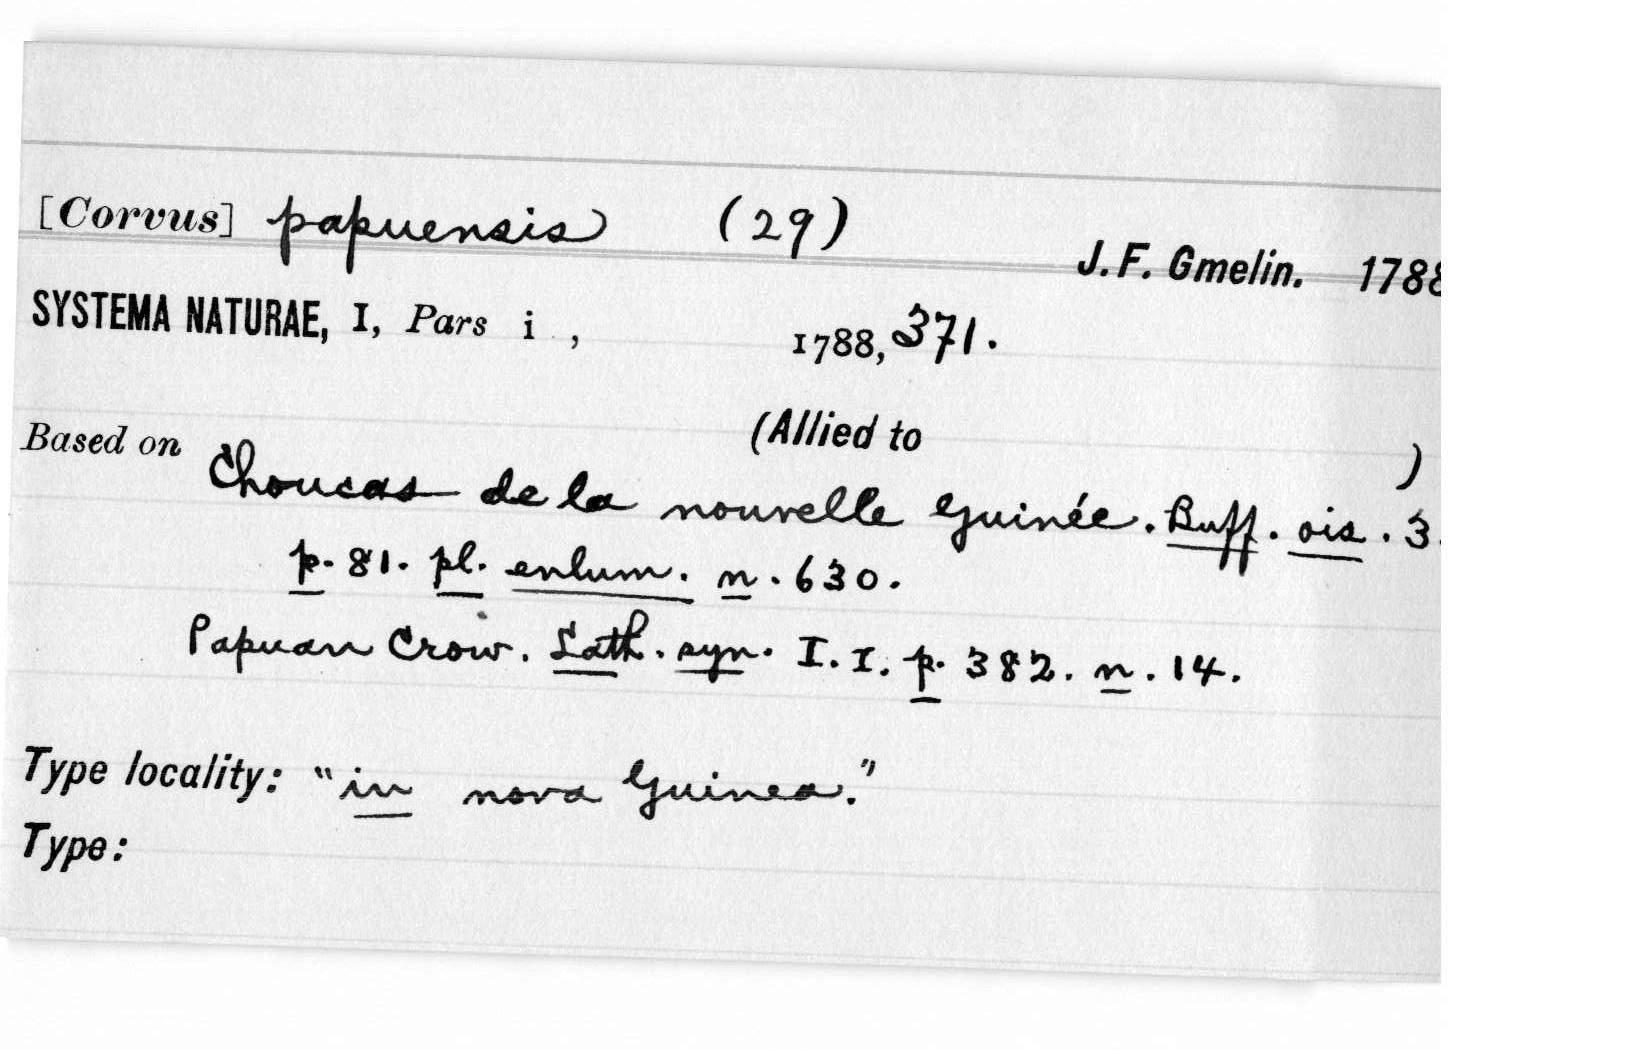 [Corvus] papuensis (29)
J. F. Gmelin. 1788
SYSTEMA NATURAE, I, Pars i , 1788, 371.
(Allied to )
Based on Choucas de la nouvelle Guinée. Buff. ois. 3.
p. 81. pl. enlum. n. 630.
Papuan Crow. Lath. syn. I. I. p. 382. n. 14.
Type locality: "in nova Guinea."
Type: